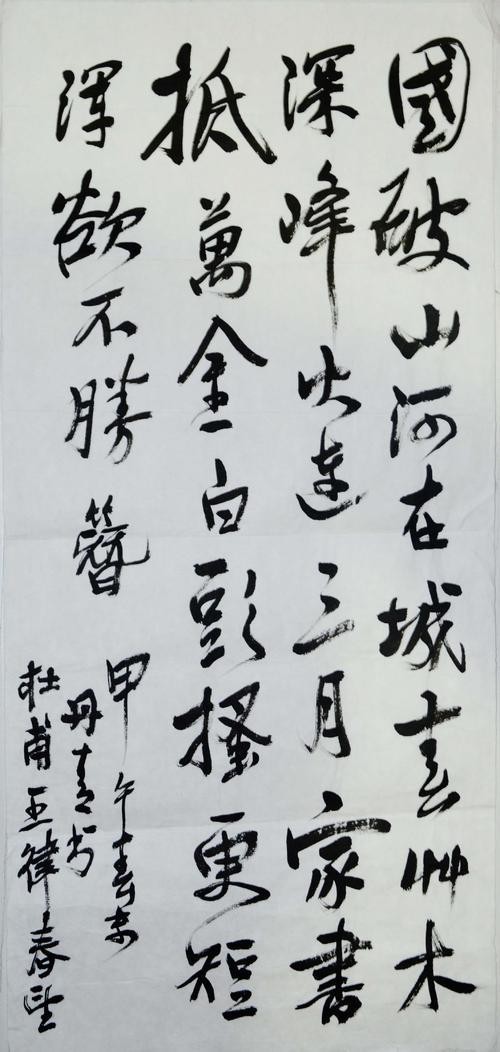 國破山河在城春艸木
深峰火連三月家書
抵萬金白頭搔更短
渾欲不勝簪
甲午春末
丹青书
杜甫五律春望